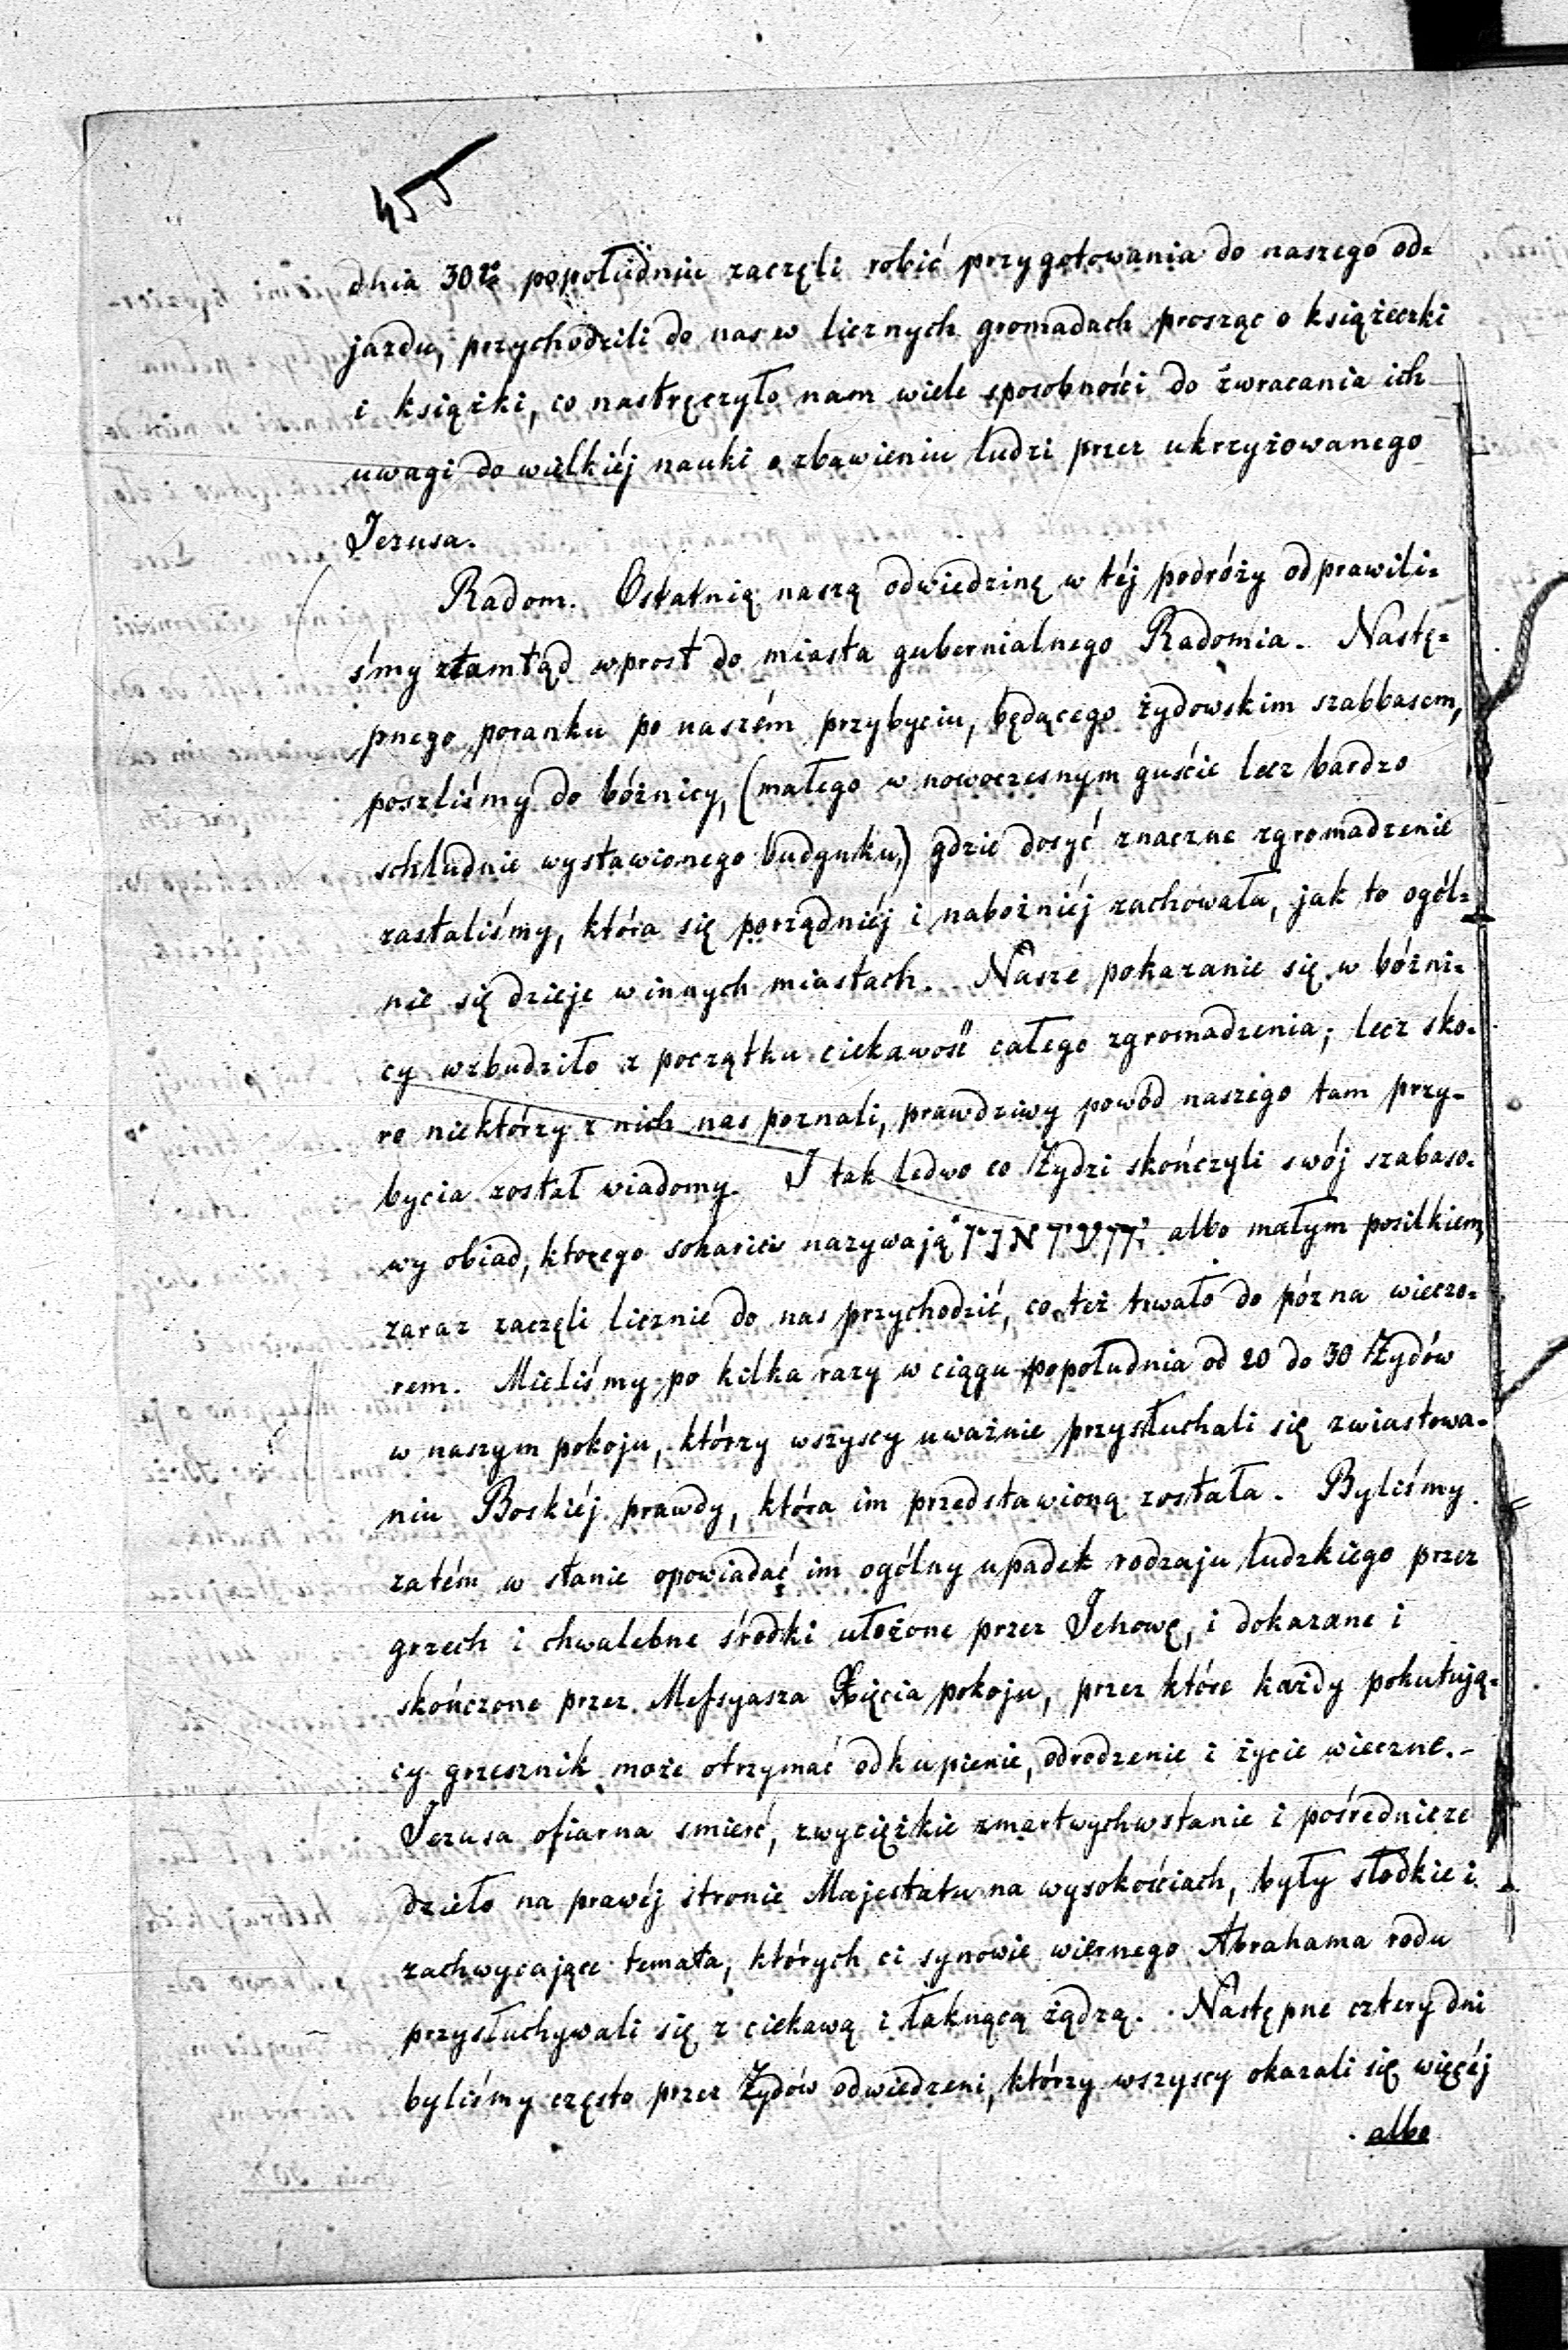 455
dnia 30go popołudniu zaczęli robić przygotowania do naszego od=
jazdu, przychodzili do nas w licznych gromadach prosząc o książeczki
i książki, co nastręczyło nam wiele sposobności do zwracania ich
uwagi do wielkiéj nauki o zbawieniu ludzi przez ukrzyżowanego
Jezusa.
Radom. Ostatnią naszą odwiedzinę w téj podróży odprawili=
śmy ztamtąd wprost do miasta gubernialnego Radomia. Nastę=
pnego poranku po naszém przybyciu, będącego żydowskim szabbasem,
poszliśmy do bóżnicy, (małego w nowoczesnym guście lecz bardzo
schludnie wystawionego budynku,) gdzie dosyć znaczne zgromadzenie
zastaliśmy, która się porządniéj i nabożniéj zachowała, jak to ogól=
nie się dzieje w innych miastach. Nasze pokazanie się w bóżni=
cy wzbudziło z początku ciekawość całego zgromadzenia; lecz sko=
ro niektórzy z nich nas poznali, prawdziwy powód naszego tam przy=
bycia został wiadomy. I tak ledwo co Żydzi skończyli swój szabaso=
wy obiad, którego nazywają albo małym posilkiem,
zaraz zaczęli licznie do nas przychodzić, co też trwało do pózna wieczo=
rem. Mieliśmy po kilka razy w ciągu popołudnia od 20 do 30 Żydów
w naszym pokoju, którzy wszyscy uważnie przysłuchali się zwiastowa=
niu Boskiéj prawdy, która im przedstawioną została. Byliśmy
zatém w stanie opowiadać im ogólny upadek rodzaju ludzkiego przez
grzech i chwalebne środki ułożone przez Jehowę, i dokazane i
skończone przez Messyasza Xięcia pokoju, przez które każdy pokutują=
cy grzesznik może otrzymać odkupienie, odrodzenie i życie wieczne.–
Jezusa ofiarna smierć, zwycięzkie zmartwychwstanie i pośrednicze
dzieło na prawéj stronie Majestatu na wysokościach, były słodkie i
zachwycające temata, których ci synowie wiernego Abrahama rodu
przysłuchywali się z ciekawą i łaknącą żądzą. Następne cztery dni
byliśmy często przez Żydów odwiedzeni, którzy wszyscy okazali się więcéj
albo